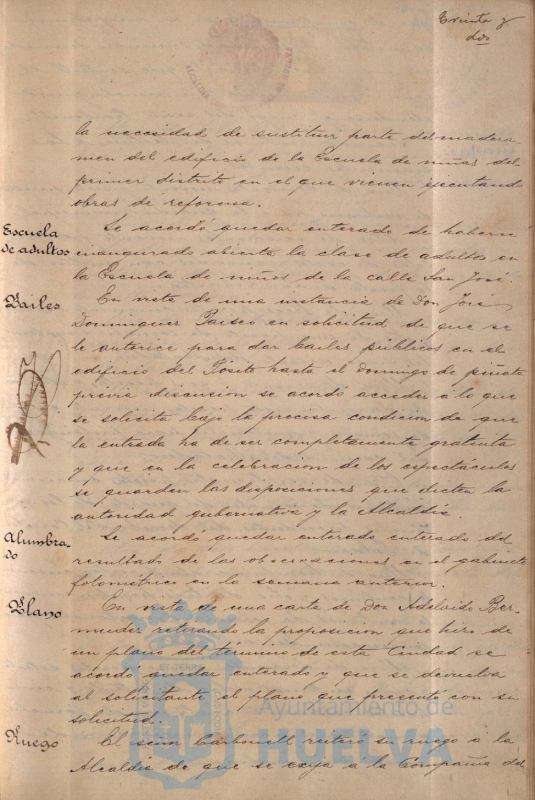 Treinta y
dos
la necesidad de sustituir parte del madera-
men del edificio de la Escuela de niñas del
primer distrito en el que vienen ejecutando
obras de reforma.
Escuela
de adultos
Se acordó quedar enterado de haberse
inaugurado abierta la clase de adultos en
la Escuela de niños de la calle San José.
Bailes
En vista de una instancia de Don José
Dominguez en solicitud de que se
le autorice para dar bailes públicos en el
edificio del Pósito hasta el domingo de piñata
previa discusion se acordó acceder á lo que
se solicita bajo la precisa condicion de que
la entrada ha de ser completamente gratuita
y que en la celebracion de los espectáculos
se guarden las disposiciones que dicten la
autoridad gubernativa y la Alcaldía.
Alumbra-
do
Se acordó quedar enterado enterado del
resultado de las observaciones en el gabinete
fotométrico en la semana anterior.
Plano
En vista de una carta de Don Adelaido Ber-
mudez retirando la proposicion que hizo de
un plano del término de esta Ciudad se
acordó quedar enterado y que se devuelva
al solicitante el plano que presentó con su
solicitud.
Ruego
El señor Carbonell reiteró su ruego á la
Alcaldía de que se exija á la Compañia del
Ayuntamiento de
HUELVA